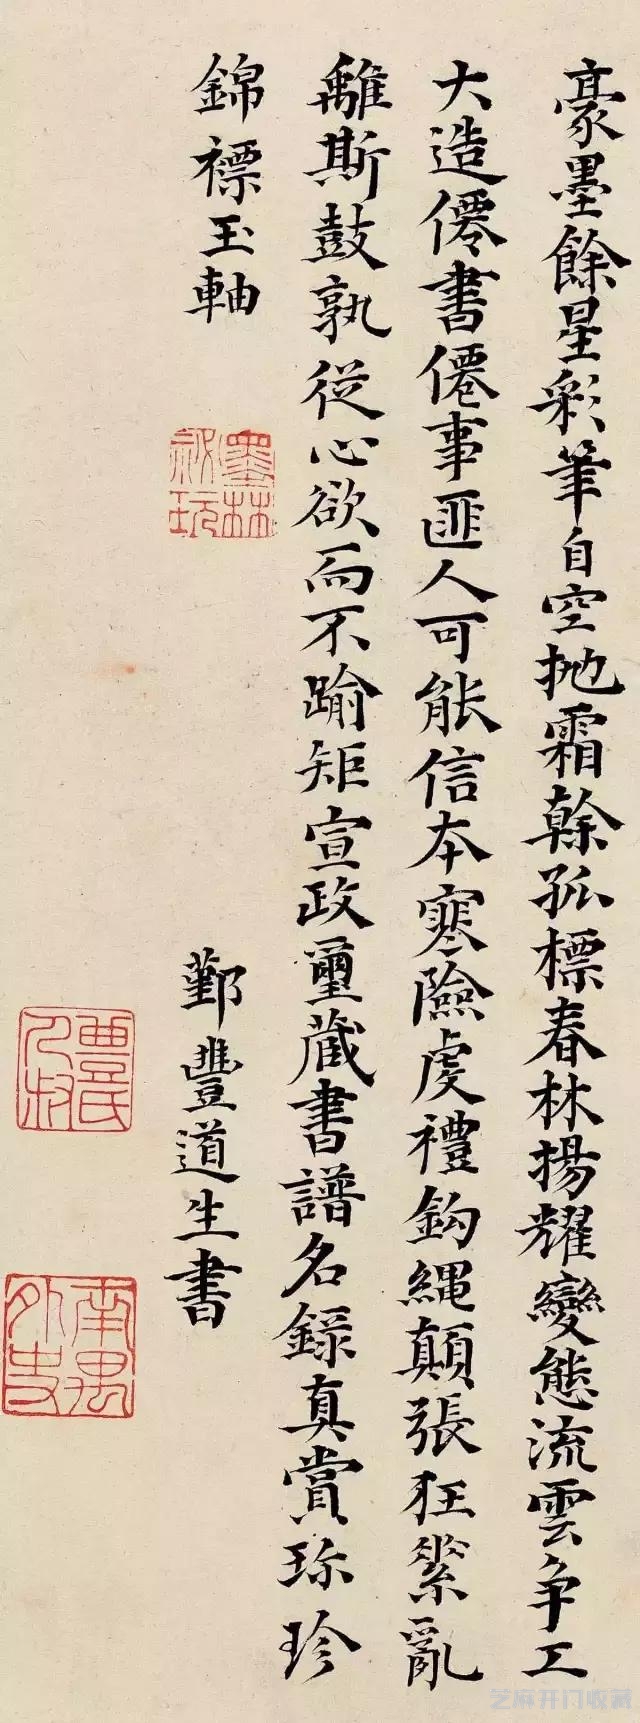 豪墨餘星彩筆自空抛霜榦孤標春林揚耀變態流雲争工
大造僊書僊事匪人可能信本寒險虔禮鈎繩顛張狂素亂
離斯鼓孰從心欲而不踰矩宣政璽藏書譜名録真賞珎珍
錦褾玉軸
墨林祕玩
鄞豐道生書
豐氏人叔
南禺外史
芝麻开门收藏